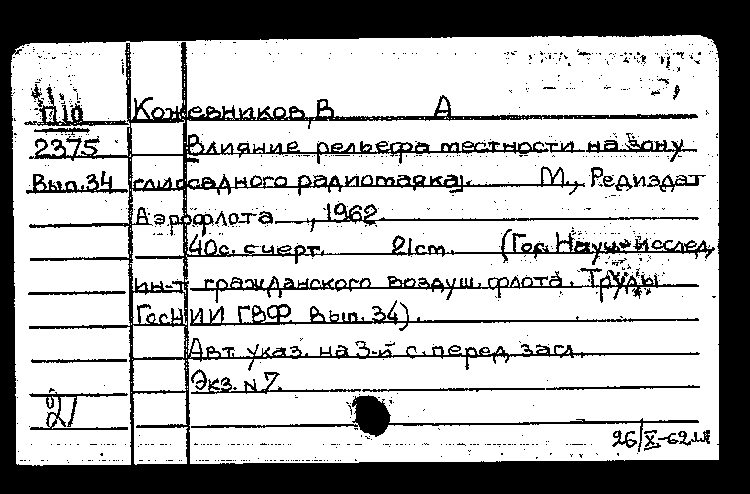 П10 Кожевников, В. А
2375 Влияние рельефа местности на зону
Вып.34 глиссадного радиомаяка. М., Редиздат
Аэрофлота, 1962.
40с. с черт. 21см. (Гос. Науч-исслед,
ин-т гражданского воздуш. флота. Труды
ГосНИИ ГВФ. Вып. 34).
Авт. указ. на 3-й с. перед загл.
Экз. N 7.
21
26/X-62